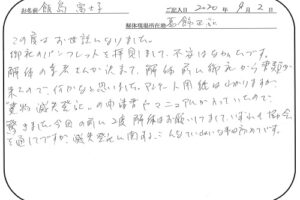 お名前 飯島 富士子 ご記入日 2020年 9月 2日
解体現場所在地 葛飾区
この度はお世話になりました。
御社のパンフレットを拝見しまして、不安はなかったです。
解体の業者さんが決まって、解体前に御社から書類が
来たので、何かなと思いました。アンケート用紙はわかりますが、
建物滅失登記の申請書やマニュアルが入っていたので、
驚きました。今回の前に2度解体をお願いしてまして、いずれも協会
を通してですが、滅失登記に関するこんなていねいな